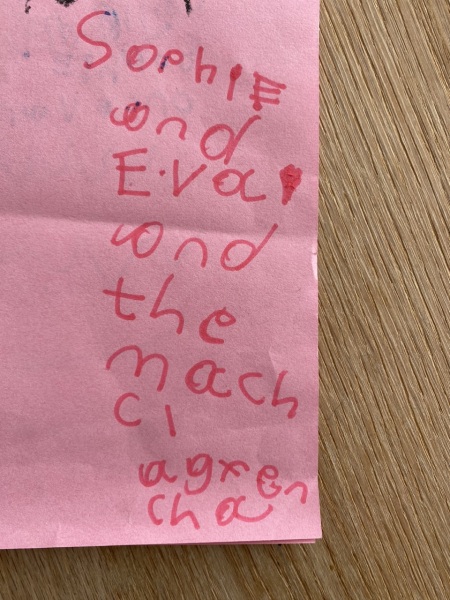 SophiE
and
E.va!
and
the
mach
ci
agxen
cha